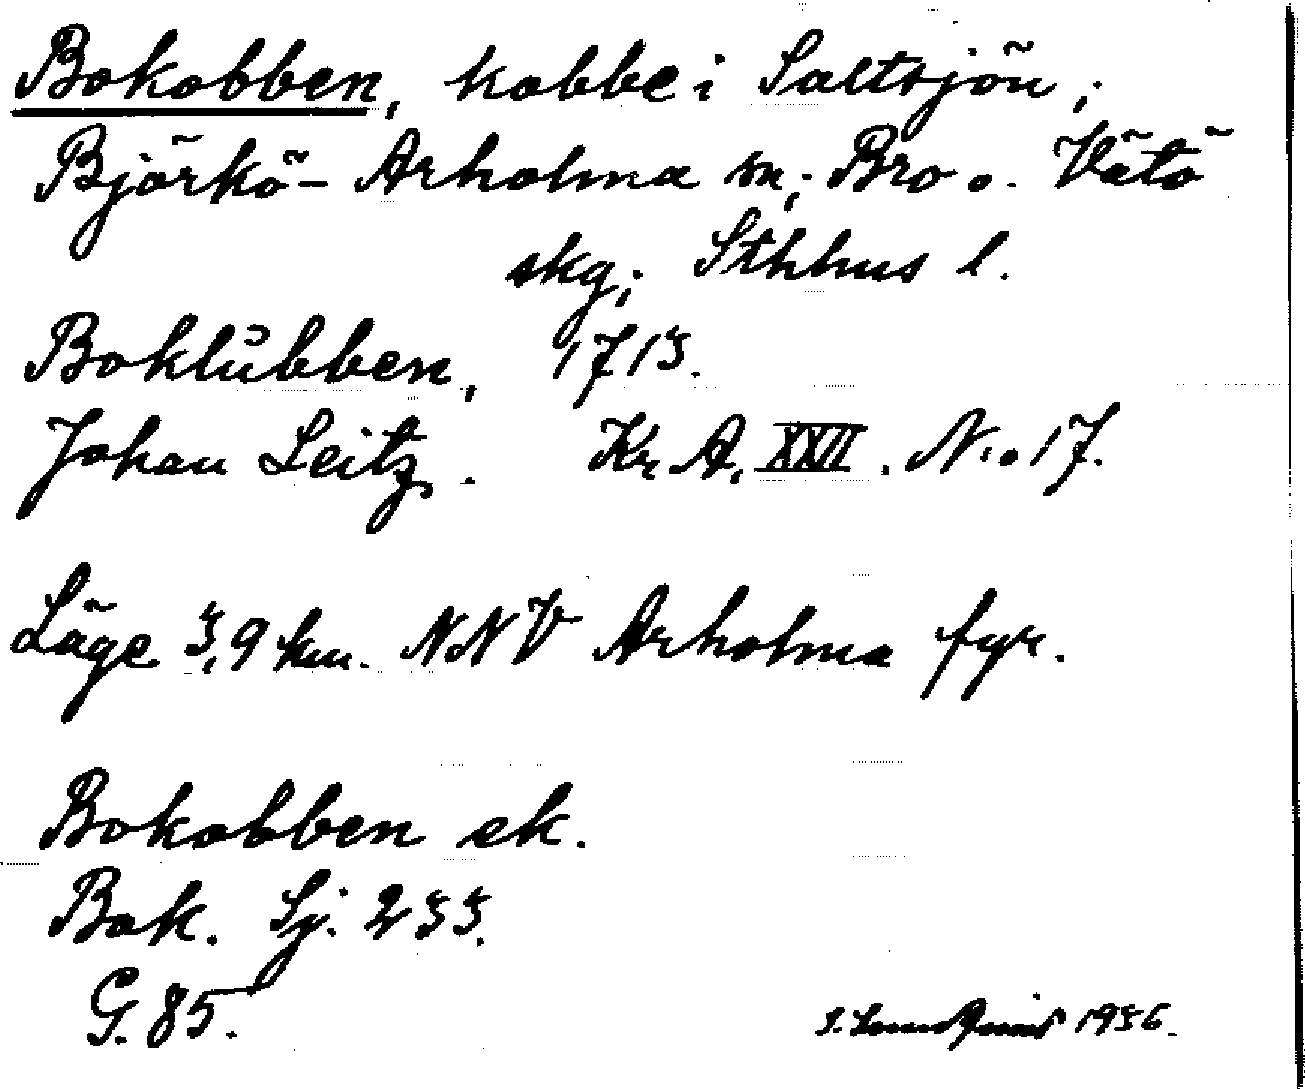 Bokobben, kobbe i Saltsjön;
Björkö-Arholma sn; Bro o. Vätö
skg; Sthlms l.
Boklubben, 1713.
Johan Leitz. Kr. A. XXII. No 17.
Läge 3,9 km. NNV Arholma fyr.
Bokobben ek.
Bok. Sj. 233.
G. 85.
1936.